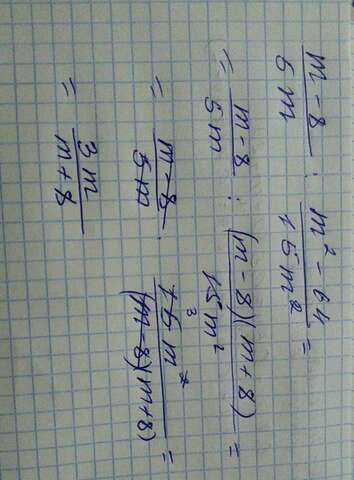 m-8/5m : m²-64/15m² =
= m-8/5m : (m-8)(m+8)/15m² =
= m-8/5m · 15m²/(m-8)(m+8) =
3
= 3m/m+8